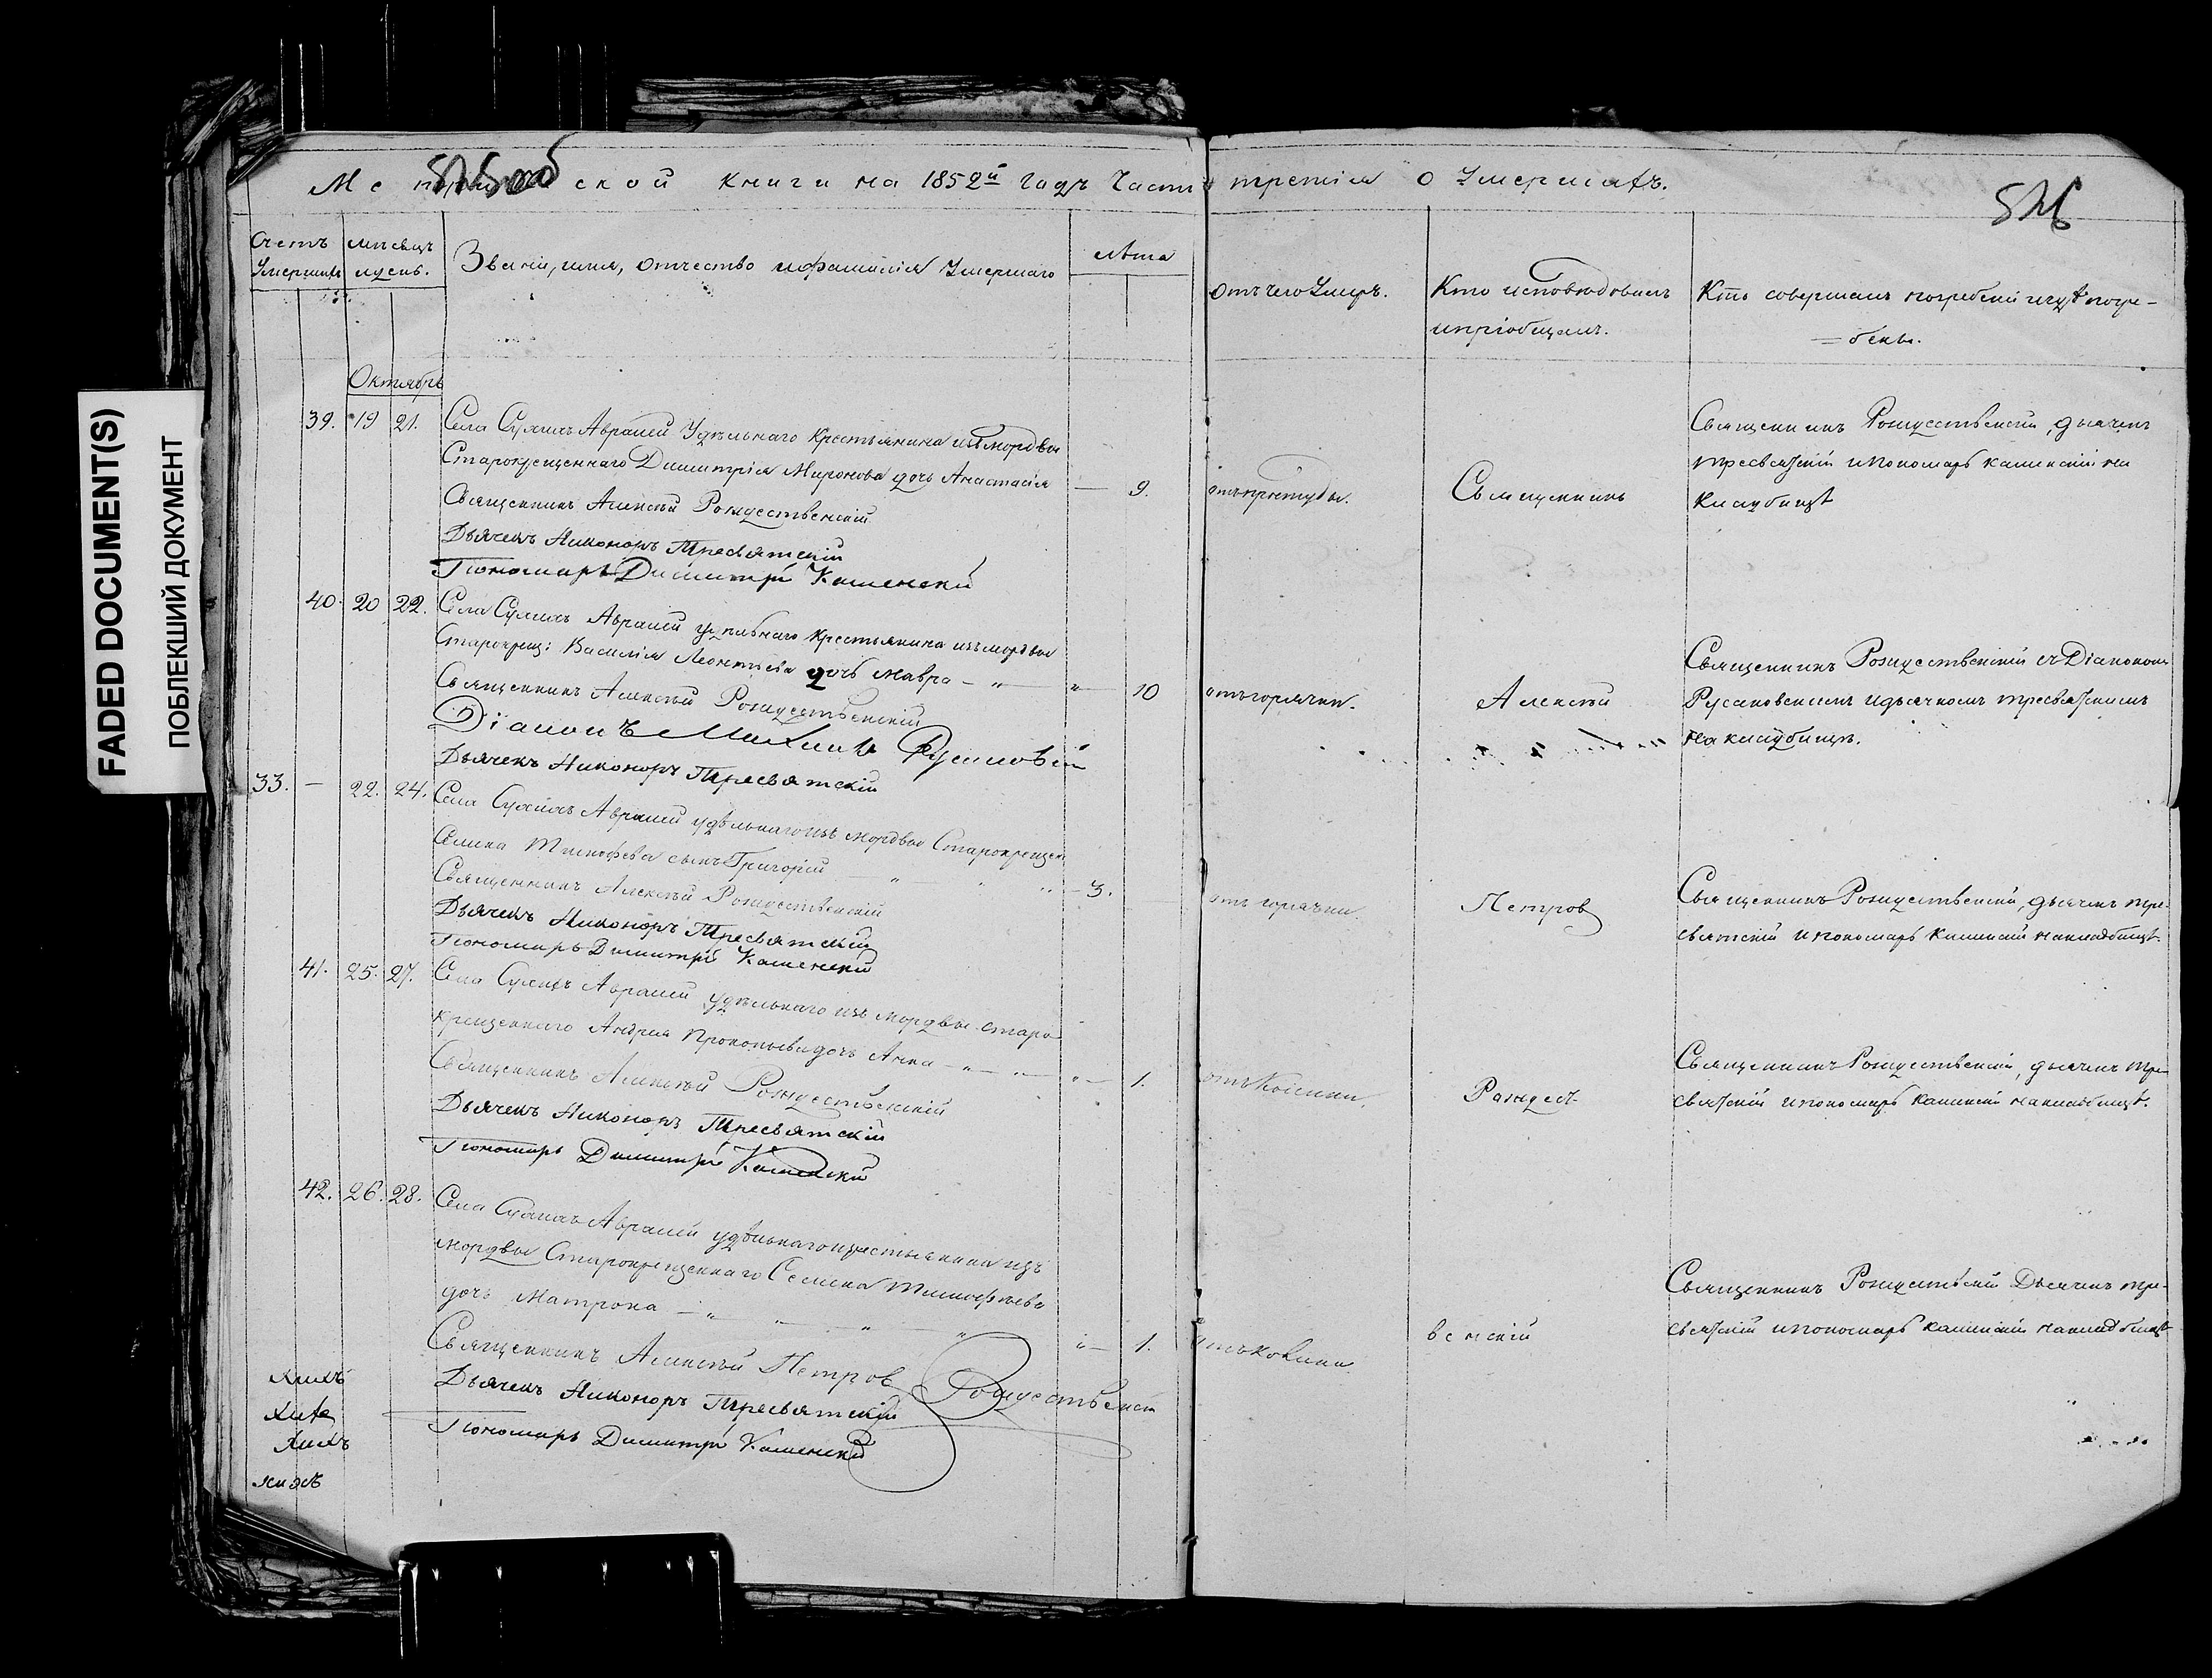 FADED DOCUMENT(S)
ПОБЛЕКШИЙ ДОКУМЕНТ
ской книги на 1852й годъ Часть третія о Умершихъ.
Счетъ Умершихъ
мѣсяцъ и день.
Званіе, имя, отчество и фамилія Умершаго
лѣта
Отъ чего Умеръ.
Кто исповѣдовалъ
и пріобщалъ.
Кто совершалъ погребеніе и гдѣ погре-
=бены.
Октябрь
39. 19 21. Села Аврамей Удѣльнаго Крестьянина изъ мордвы
Старокрещеннаго Димитрія Миронова дочь Анастасія — 9.
Священникъ Алексѣй Рождественскій
Дьячекъ Никоноръ Тресвятскій
Пономарь Димитрій Каменскій
Священникъ
Священникъ Рождественскій, дьячекъ
тресвятскій и пономарь каменскій на
кладбищѣ
40. 20 22. Села Аврамей удѣльнаго крестьянина изъ мордвы
Старокрещ: Василія Леонтьева дочь Мавра — " — " — 10
Священникъ Алексѣй Рождественскій
Діаконъ Михаилъ
Дьячекъ Никоноръ Тресвятскій
отъ горячки.
Алексѣй
Священникъ Рождественскій съ Діакономъ
Русановскимъ и дьячкомъ тресвятскимъ
на кладбищѣ.
33. — 22. 24. Села Аврамей удѣльнаго изъ мордвы Старокрещен
Семена Тимофева сынъ Григорій — " 3.
Священникъ Алексѣй Рождественскій
Дьячекъ Никоноръ Тресвятскій
Пономарь Димитрій Каменскій
отъ горячки.
Петров
Священникъ Рождественскій, дьячекъ тре-
святскій и пономарь каменскій на кладбищѣ.
41. 25. 27. Села Аврамей удѣльнаго изъ мордвы старо
крещеннаго Андрея Прокопьева дочь Анна — " — " — " — 1.
Священникъ Алексѣй Рождественскій
Дьячекъ Никоноръ Тресвятскій
Пономарь Димитрій Каменскій
Рождест
Священникъ Рождественскій, дьячекъ тре-
святскій и пономарь каменскій на кладбищѣ.
42. 26. 28. Села Аврамей удѣльнаго крестьянина изъ
мордвы Старокрещеннаго Семена Тимофѣева
дочь Матрона — " — " — " — " — 1.
Священникъ Алексѣй Петров Рождественскій
Дьячекъ Никоноръ Тресвятскій
Пономарь Димитрій Каменскій
венскій
Священникъ Рождественскій Дьячекъ тре-
святскій и пономарь каменскій на кладбищѣ